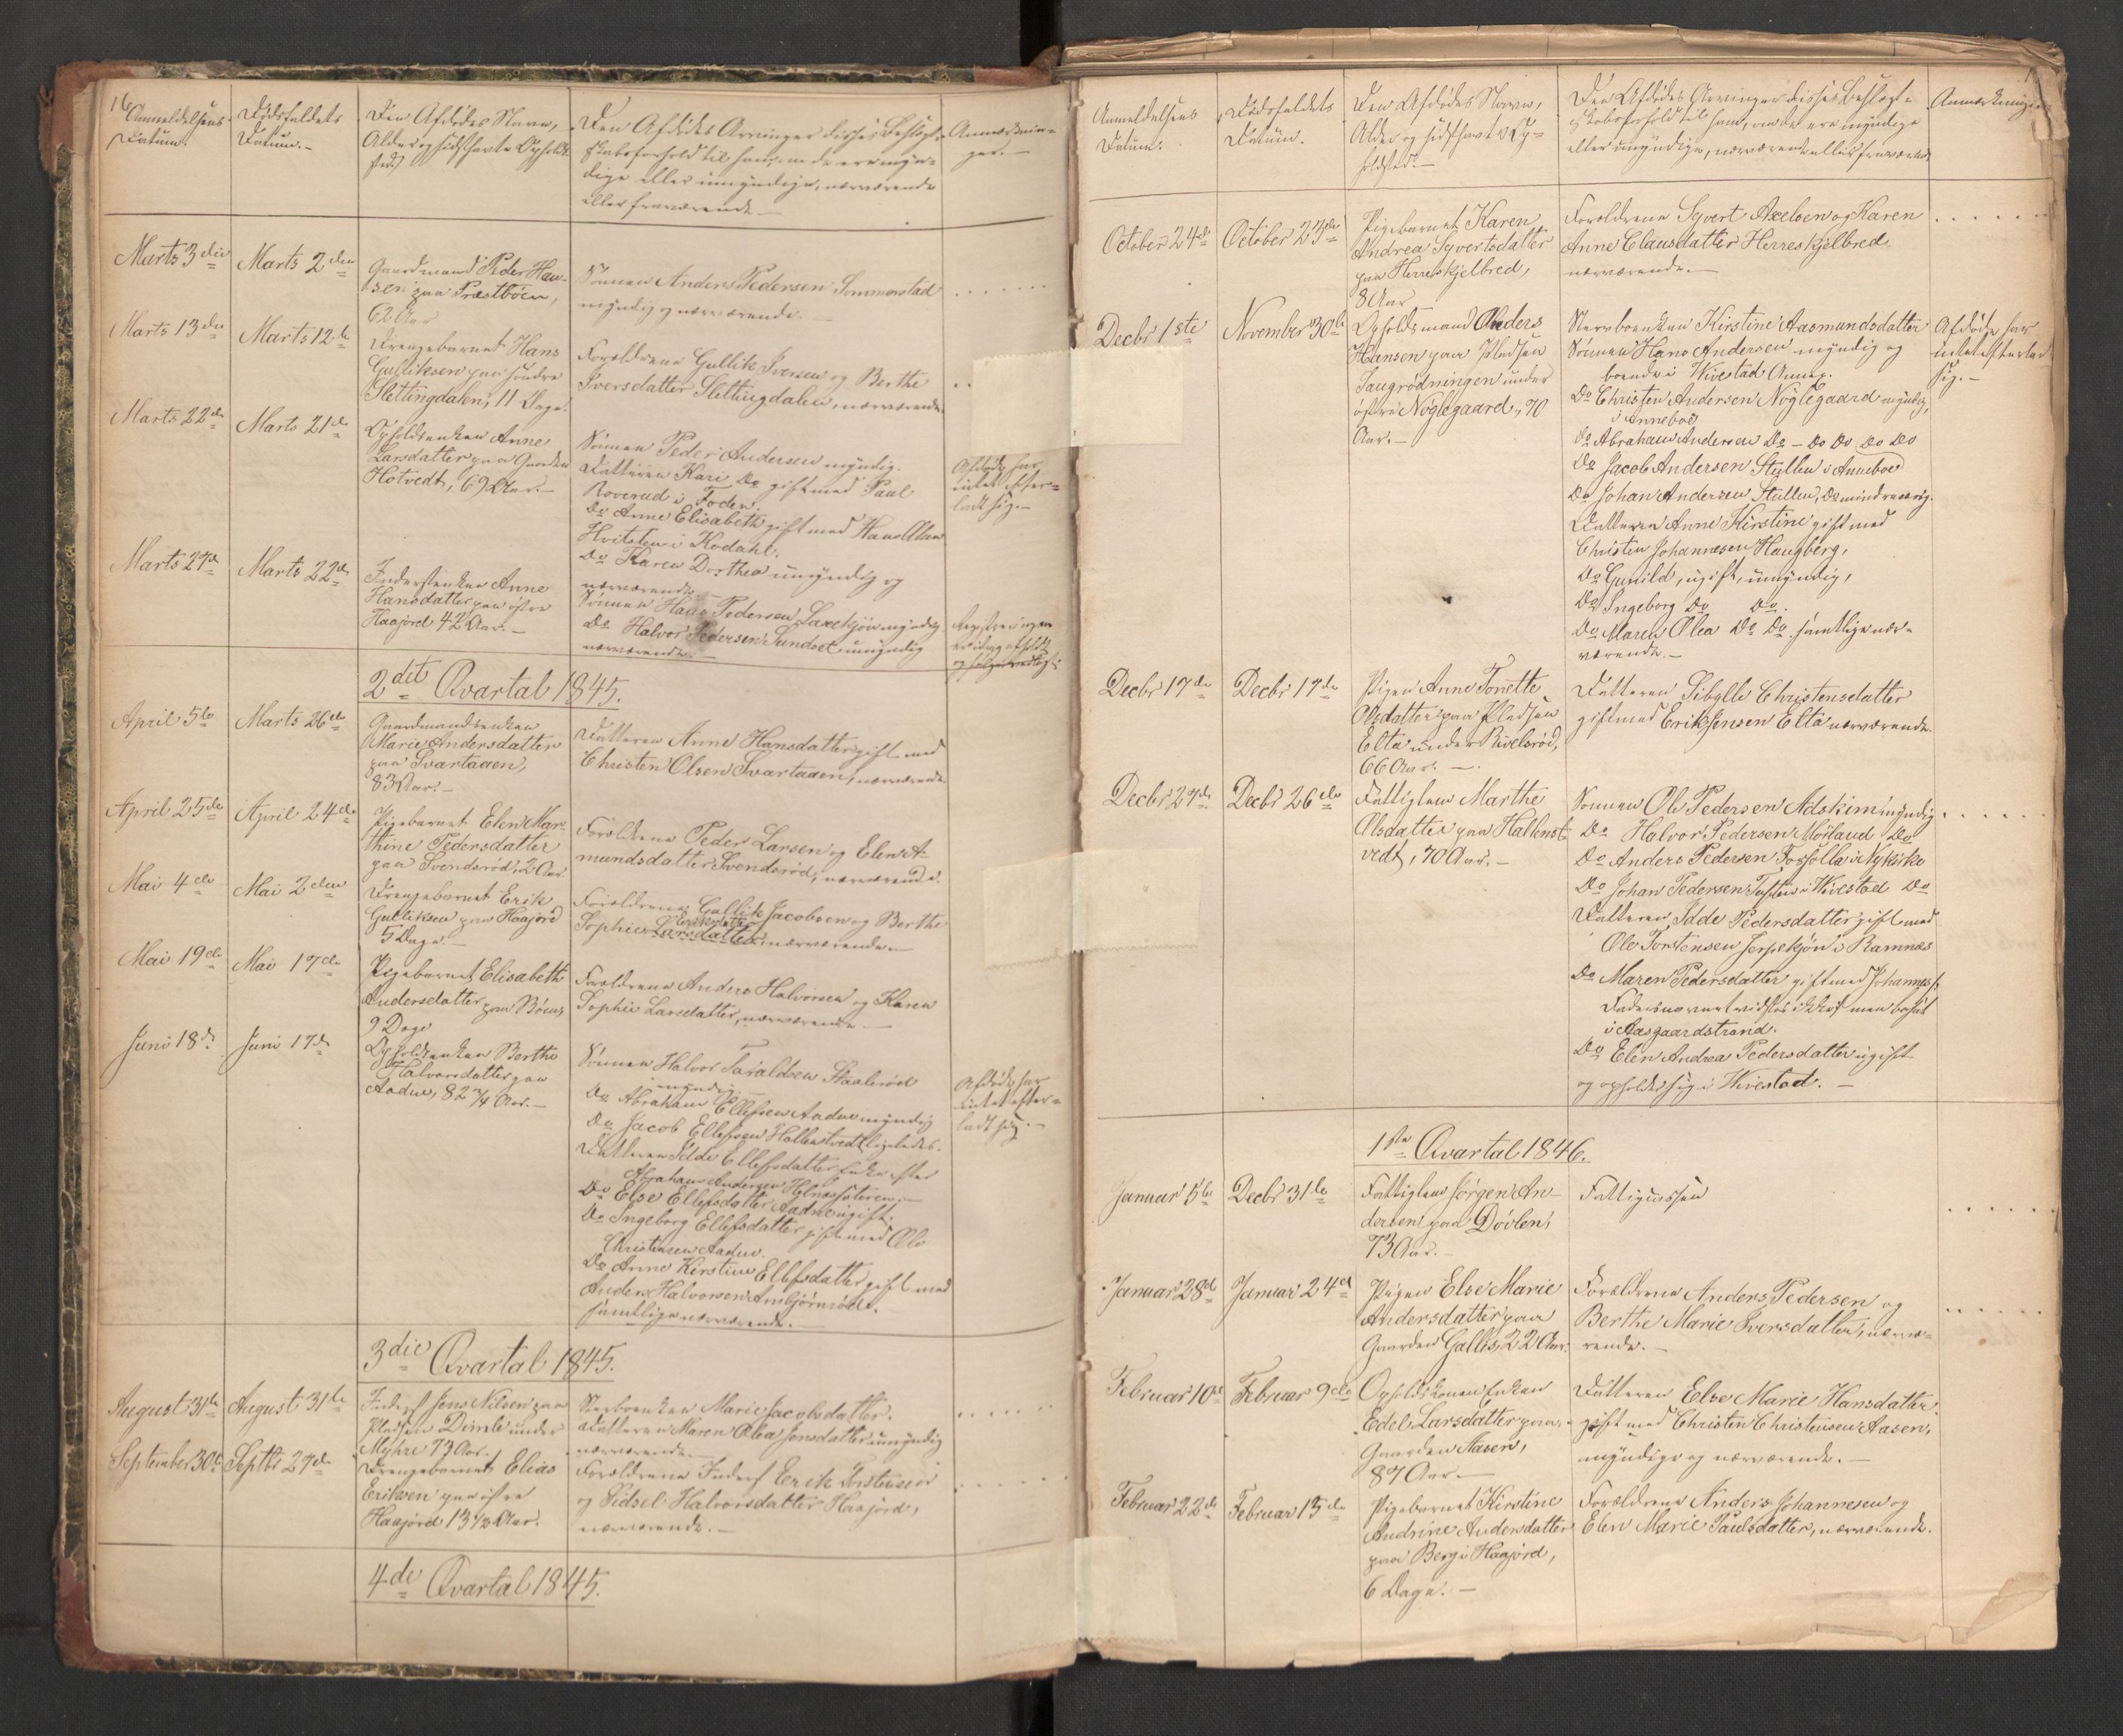 16
Anmeldelsens
Datum.
Dødsfaldets
Datum. -
Den Afdødes Navn,
Alder og sidst havte Opholds
sted
Den Afdødes Arvinger disses Beslægt-
skabsforhold til ham, om de ere myn-
dige eller umyndige, nærværende
eller fraværende -
Anmærknin-
ger. -
Marts 3die
Marts 2den
Gaardmand Peder Han-
sen paa Præstbøen,
62 Aar
Sønnen Anders Pedersen Sommerstad
myndig og nærværende. -
Marts 13de
Marts 12te
Drengebarnet Hans
Gulliksen paa søndre
Slettingdalen, 11 Dage.
Forældrene Gullik Iversen og Berthe
Iversdatter Slettingdalen, nærværende
Marts 22de
Marts 21de
Opholdsenken Anne
Larsdatter paa Gaarden
Hotvedt, 69 Aar. -
Sønnen Peder Andersen myndig.
Datteren Kari Do gift med Paul
Roverud i Foden.
Do Anne Elisabeth gift med Hans Olsen
Hvitsten i Kodahl.
Do Karen Dorthea umyndig og
nærværende. -
Afdøde har
intet efter-
ladt sig. -
Marts 27de
Marts 22de
Inderstenken Anne
Hansdatter paa østre
Haajord 42 Aar. -
Sønnen Hans Pedersen Saxekjøn myndig
Do Halvor Pedersen Sundset umyndig
nærværende. -
Registreringen
er idag afholdt
og følger vedlagt.
2det Qvartal 1845.
April 5te
Marts 26de
Gaardmandsenken
Marie Andersdatter
paa Svartaaen,
83 Aar. -
Datteren Anne Hansdatter gift med
Christen Olsen Svartaaen, nærværende
April 25de
April 24de
Pigebarnet Elen Mar-
thine Pedersdatter
paa Svendsrød, 2 Aar
Forældrene Peder Larsen og Elen A-
mundsdatter Svendsrød, nærværende.
Mai 4de
Mai 2den
Drengebarnet Erik
Gulliksen paa Haajord
5 Dage. -
Forældrene Gullik Jacobsen og Berthe
Eriksdatter
Sophie Larsdatter nærværende -
Mai 19de
Mai 17de
Pigebarnet Elisabeth
Andersdatter paa Bøen
9 Dage
Forældrene Anders Halvorsen og Karen
Sophie Larsdatter, nærværende -
Juni 18de
Juni 17de
Opholdsenken Berthe
Halvorsdatter paa
Aadne, 82 3/4 Aar. -
Sønnen Halvor Taraldsen Staalerød
myndig
Do Abraham Ellefsen Aadne myndig
Do Jacob Ellefsen Hallenstvedt ligeledes.
Datteren Idde Ellefsdatter Enke efter
Abraham Andersen Helnæssæteren. -
Do Else Ellefsdatter Aadne ugift.
Do Ingeborg Ellefsdatter gift med Ole
Christensen Aadne.
Do Anne Kirstine Ellefsdatter gift med
Anders Halvorsen Ambjørnrød.
samtlige nærværende. -
Afdøde har
intet efter-
ladt sig. -
3die Qvartal 1845.
August 31te
August 31te
Inderst Jens Nilsen paa
Pladsen Dimle under
Myhre 73 Aar.
Sterboenken Marie Jacobsdatter.
Datteren Maren Olea Jensdatter umyndig
nærværende -
September 30te
Septbr 29de
Drengebarnet Elias
Eriksen paa østre
Haajord 13 1/2 Aar.
Forældrene Inderst Erik Torstensen
og Sidsel Halvorsdatter Haajord,
nærværende. -
4de Qvartal 1845.
Anmeldelsens
Datum.
Dødsfaldets
Datum.
Den Afdødes Navn,
Alder og sidst havte Op-
holdsted. -
Den Afdødes Arvinger disses Beslægt-
skabsforhold til ham, om de ere myndige
eller umyndige, nærværende eller fraværende
Anmærkninger
October 24de
October 23de
Pigebarnet Karen
Andrea Syvertsdatter
paa Herreskjelbred,
8 Aar
Forældrene Syvert Axelsen og Karen
Anne Clausdatter Herreskjelbred,
nærværende. -
Decbr 1ste
November 30te
Opholdsmand Anders
Hansen paa Pladsen
Saugrødningen under
østre Nøglegaard, 70
Aar. -
Sterboenken Kirstine Aasmundsdatter
Sønnen Hans Andersen myndig og
boende i Hivestad Annex.
Do Christen Andersen Nøglegaard myndig,
i Annebo
Do Abraham Andersen Do - Do Do Do Do
Do Jacob Andersen Stullen i Anneboe
Do Johan Andersen Stullen, Do mindreaarig.
Datteren Anne Kirstine gift med
Christen Johannesen Haugberg,
Do Gunild, ugift, umyndig,
Do Ingeborg Do Do.
Do Maren Olea Do Do. samtlige nær-
værende. -
Afdøde har
intet efterladt
sig. -
Decbr 17de
Decbr 17de
Pigen Anne Tonette
Olsdatter paa Pladsen
Elta under Rivelsrød,
66 Aar. -
Datteren Sibylle Christensdatter
gift med Erik Jensen Elta nærværende.
Decbr 27de
Decbr 26de
Fattiglem Marthe
Olsdatter paa Hallenst-
vedt, 70 Aar. -
Sønnen Ole Pedersen Adskim myndig
Do Halvor Pedersen Møiland Do
Do Anders Pedersen Forsølla i Nykirke
Do Johan Pedersen Tuften i Hivestad Do
Datteren Idde Pedersdatter gift med
Ole Torstensen Jerpekjøn i Ramnæs
Do Maren Pedersdatter gift med Johannes
Fadersnavnet vidstes ikke men bosat
i Aasgaardstrand.
Do Elen Andrea Pedersdatter ugift
og opholder sig i Hivestad. -
1ste Qvartal 1846.
Januar 5te
Decbr 31te
Fattiglem Jørgen An-
dersen paa Døvlen,
73 Aar. -
Fattigcassen
Januar 28de
Januar 24de
Pigen Else Marie
Andersdatter paa
Gaarden Galles, 22 Aar.
Forældrene Anders Pedersen og
Berthe Marie Iversdatter, nærvæ-
rende. -
Februar 10de
Februar 9de
Opholdskonen Enken
Edel Larsdatter paa
Gaarden Aasen,
87 Aar. -
Datteren Else Marie Hansdatter
gift med Christen Christensen Aasen,
myndige og nærværende. -
Februar 22de
Februar 15de
Pigebarnet Kirstine
Andrine Andersdatter
paa Berg i Haajord,
6 Dage. -
Forældrene Anders Johannesen og
Elen Marie Paulsdatter, nærværende.